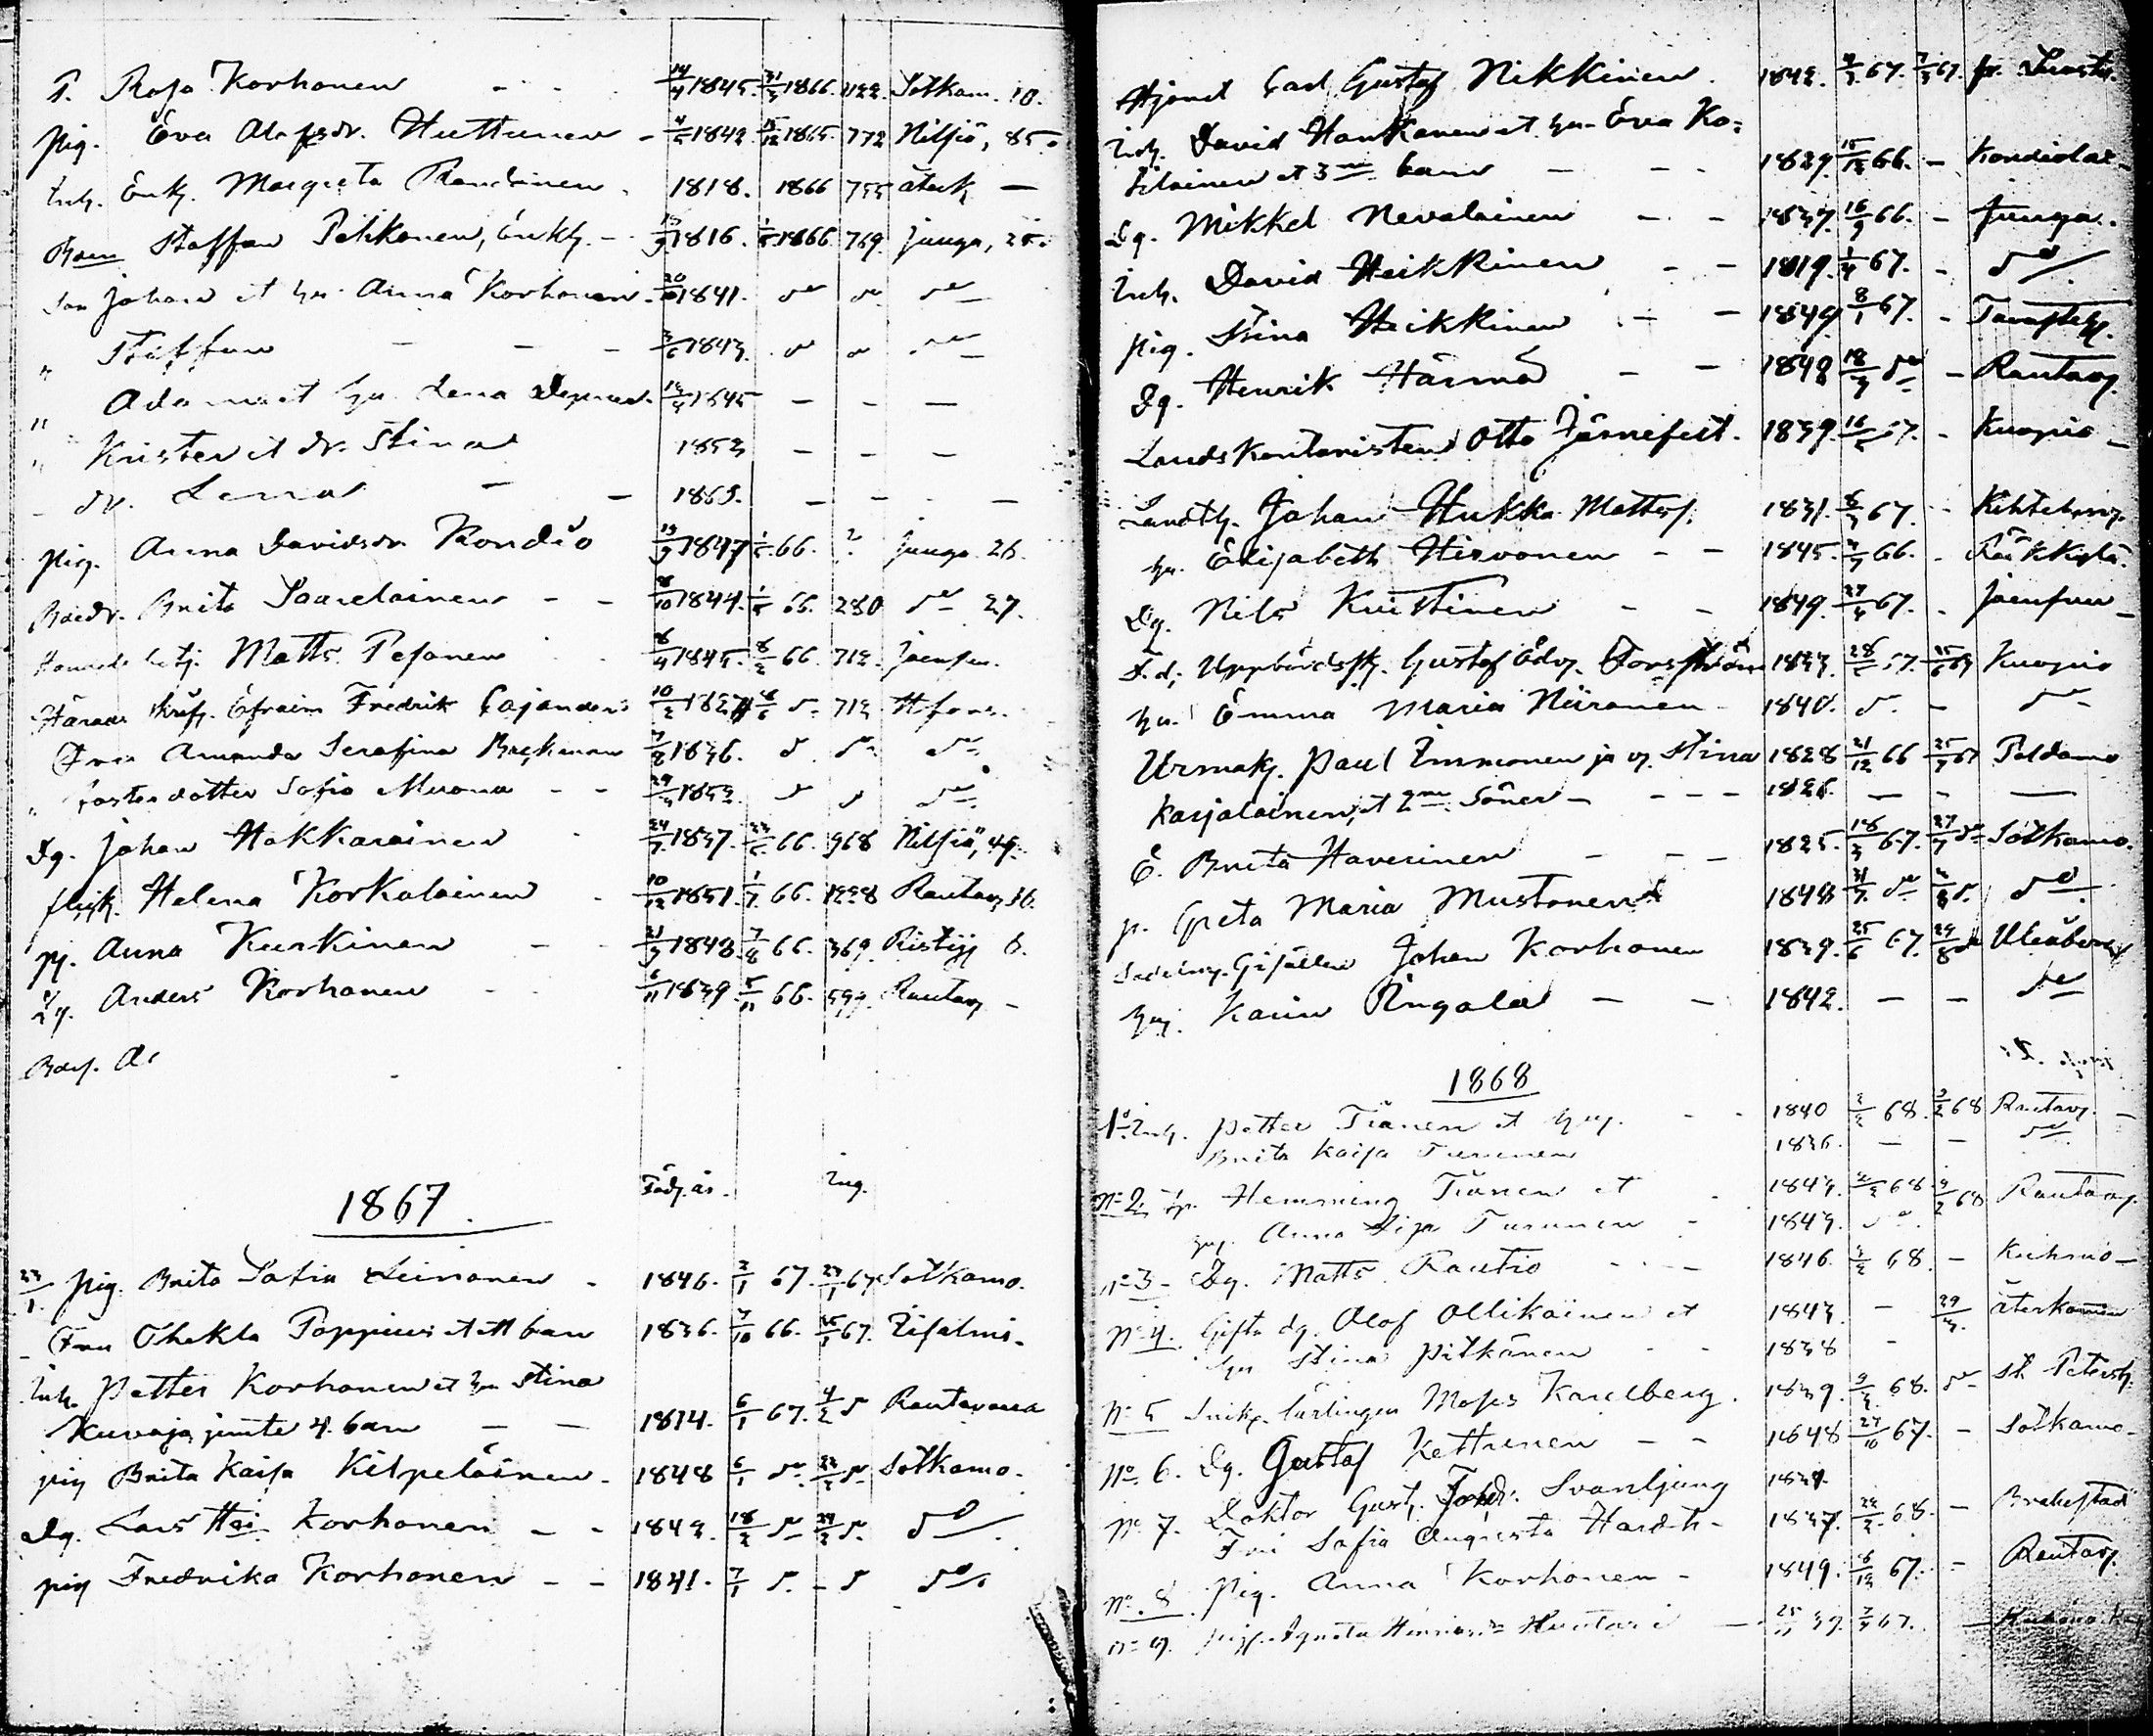 P. Kaja Korhonen - - 14/4 1845. 31/3 1866. 1122. Sotkam. 10.
pig. Eva Olofsdr. Huttunen - 4/5 1842. 15/12 1865 772 Nilsiä, 85.
Inh. Enk. Margreta 1818. 1866 755 återk. —
Bon. Staffan Pehkonen, Enkl. - 1816. 1866 769. Juuga, 25.
Son Johan et hu. Anna Korhonen. 1841. do do do
„ Staffan - - - 3/6 1843. do do do
„ Adam et hu. Lena 1845 - - -
„ Krister et dr. Stina 1853 - - -
- dr. Lena - - 1865. - - -
pig. Anna Davidsdr. Kondio 1847 66. ? Juuga 26.
Brita Saarelainen - - 8/10 1844. 66. 280 do 27.
Matts Pesonen 6/4 1845. 8/2 66. 712. Joensu.
Härads skrifv. Efraim Fredrik Cajander 10/2 1827 do 712 H:fors.
Fru Amanda Serafina Backman 7/2 1836. do do do
„ Fosterdotter Sofia Muona - - 29/ 1853. do do do
Dg. Johan Hakkarainen 24/7 1837. 66. 968 Nilsiä, 49.
flick. Helena Korkalainen 10/12 1851. 1/7 66. 1228 Rautav. 36.
pj. Anna Kurkinen - - 21/9 1848. 7/8 66. 369. Ristijj 6.
Dg. Anders Korhonen - - 6/11 1839. 5/11 66. 599. Rautav -
1867. Föd. år. Ing.
23/1. pig. Brita Sofia Leinonen - 1846. 2/1 67. 23/1 67. Sotkamo.
- Fru Thekla Poppius et ett barn 1836. 7/10 66. 67. Iisalmi.
Inh. Petter Korhonen et hu Stina
Kuvaja jemte 4. barn - - 1814. 6/1 67. 4/2 do Rautavaara
pig Brita Kaisa Kilpeläinen. 1848 6/1 do do Sotkamo.
Dg. Lars Hei. Korhonen - - 1843. 18/2 do do do
pig Fredrika Korhonen - - 1841. 7/1 do - do do
Carl Gustaf Nikkinen. 1842. 67. 67.
Inh. David Hankanen et hu. Eva Ko-
et 3 barn - - - 1829. 66. - Kondiolax
Dg. Mikkel Nevalainen - - 1837. 16/9 66. - Juuga.
Inh. David Heikkinen - - 1819. 1/4 67. - do
pig. Stina Heikkinen - - 1849 8/1 67. - Tavastehg.
Dg. Henrik Härmä - - 1848 18/3 do - Rautav.
Landskontoristen Otto Järnefelt. 1839. 16/5 67. - Kuopio -
Landtb. Johan Hukka Mattsf. 1831. 67. - Kihtelysv.
hu. Elisabeth Hirvonen - - 1845. 66. - Räkkylä.
Dg. Nils Kinstinen - - 1849. 27/4 67. - Joensuu -
F.d. Uppbördssk. Gustaf Edv. Forsström 1833 28/5 67. Kuopio
hu. Emma Maria Niiranen - 1840. do - do
Urmak. Paul Immonen ja v. Stina 1828 21/12 66 25/7 67 Paldamo
Karjalainen, et 2ne Söner - - - 1826. - - -
E. Brita Haverinen - - - 1825. 18/3 67. 27/7 do Sotkamo.
p. Greta Maria Mustonen 1848 do do do
Gesällen Johan Korhonen 1839. 25/6 67. 24/8 Uleåborg
hu. Karin Ringala - - 1842. - - do
1868
1o Inh. Petter Tiänen et hu. - - 1840 68. 68 Rautav. -
Brita Kaisa Turunen 1836. - - do
No 2. Hemming Tiänen et 1843. 68. 68 Rautav.
hu. Anna Lisa Turunen - 1843. do.
No 3 - Dg. Matts Rautio - - 1846. 68. - Kuhmo -
No 4. Gifta dg. Olof Ollikainen et 1843 - 29/ återkommen
hu Stina Pitkänen - - 1838 -
No 5 Snick. lärlingen Moses Karelberg. 1839. 68. do St. Petersb.
No. 6. Dg. Gustaf Kettunen - - 1848 27/10 67. - Sotkamo.
No. 7. Doktor Gust. Svanljung 1834.
Fru Sofia Augusta Hardh - 1837. 68. - Brahestad
No. 8 Pig. Anna Korhonen - 1849. 67. - Rautav.
No 9. Agneta Huntari - 25/11 39. 67. -